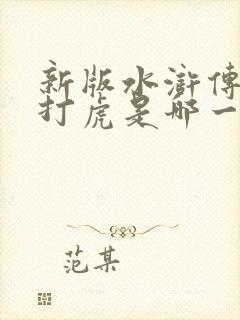 新版水滸傳
打虎是哪一
范某